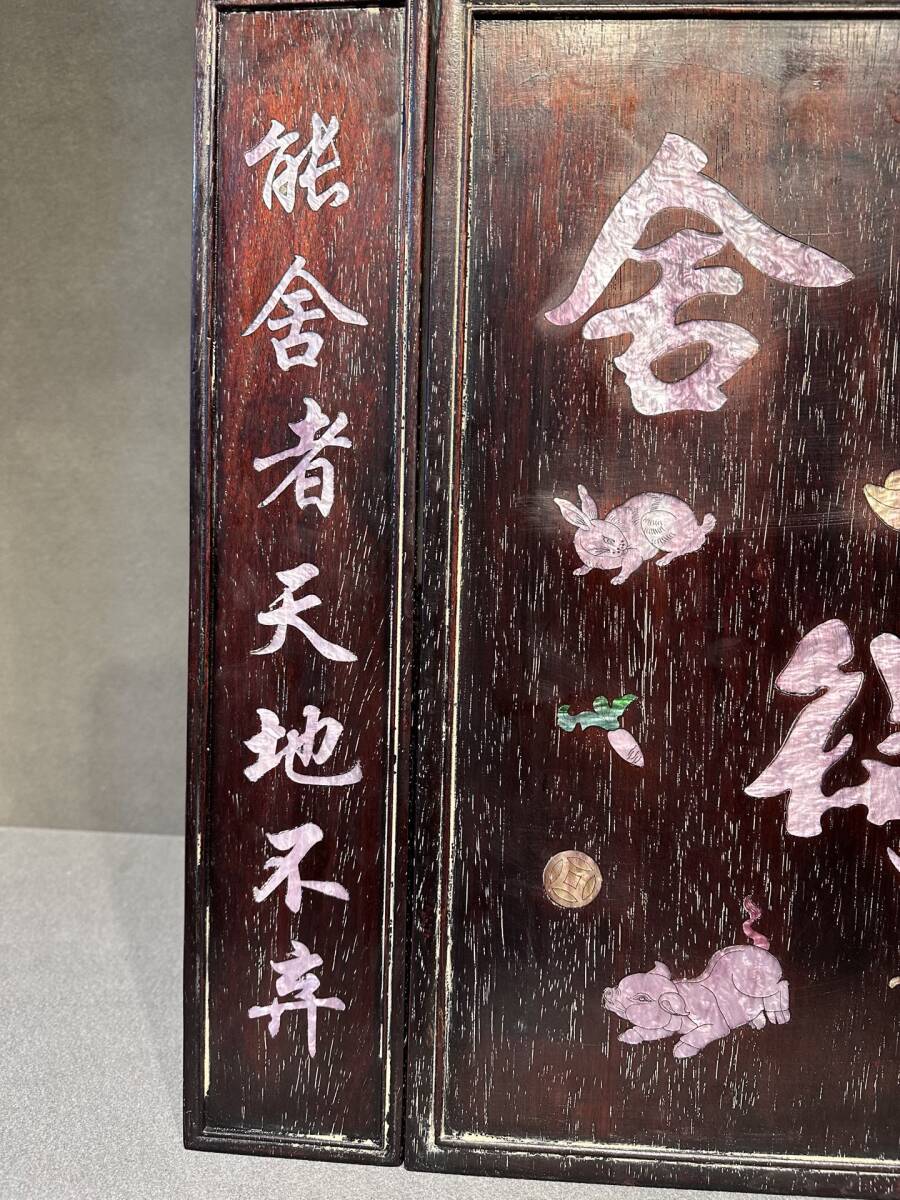 能舍者天地不弃
舍